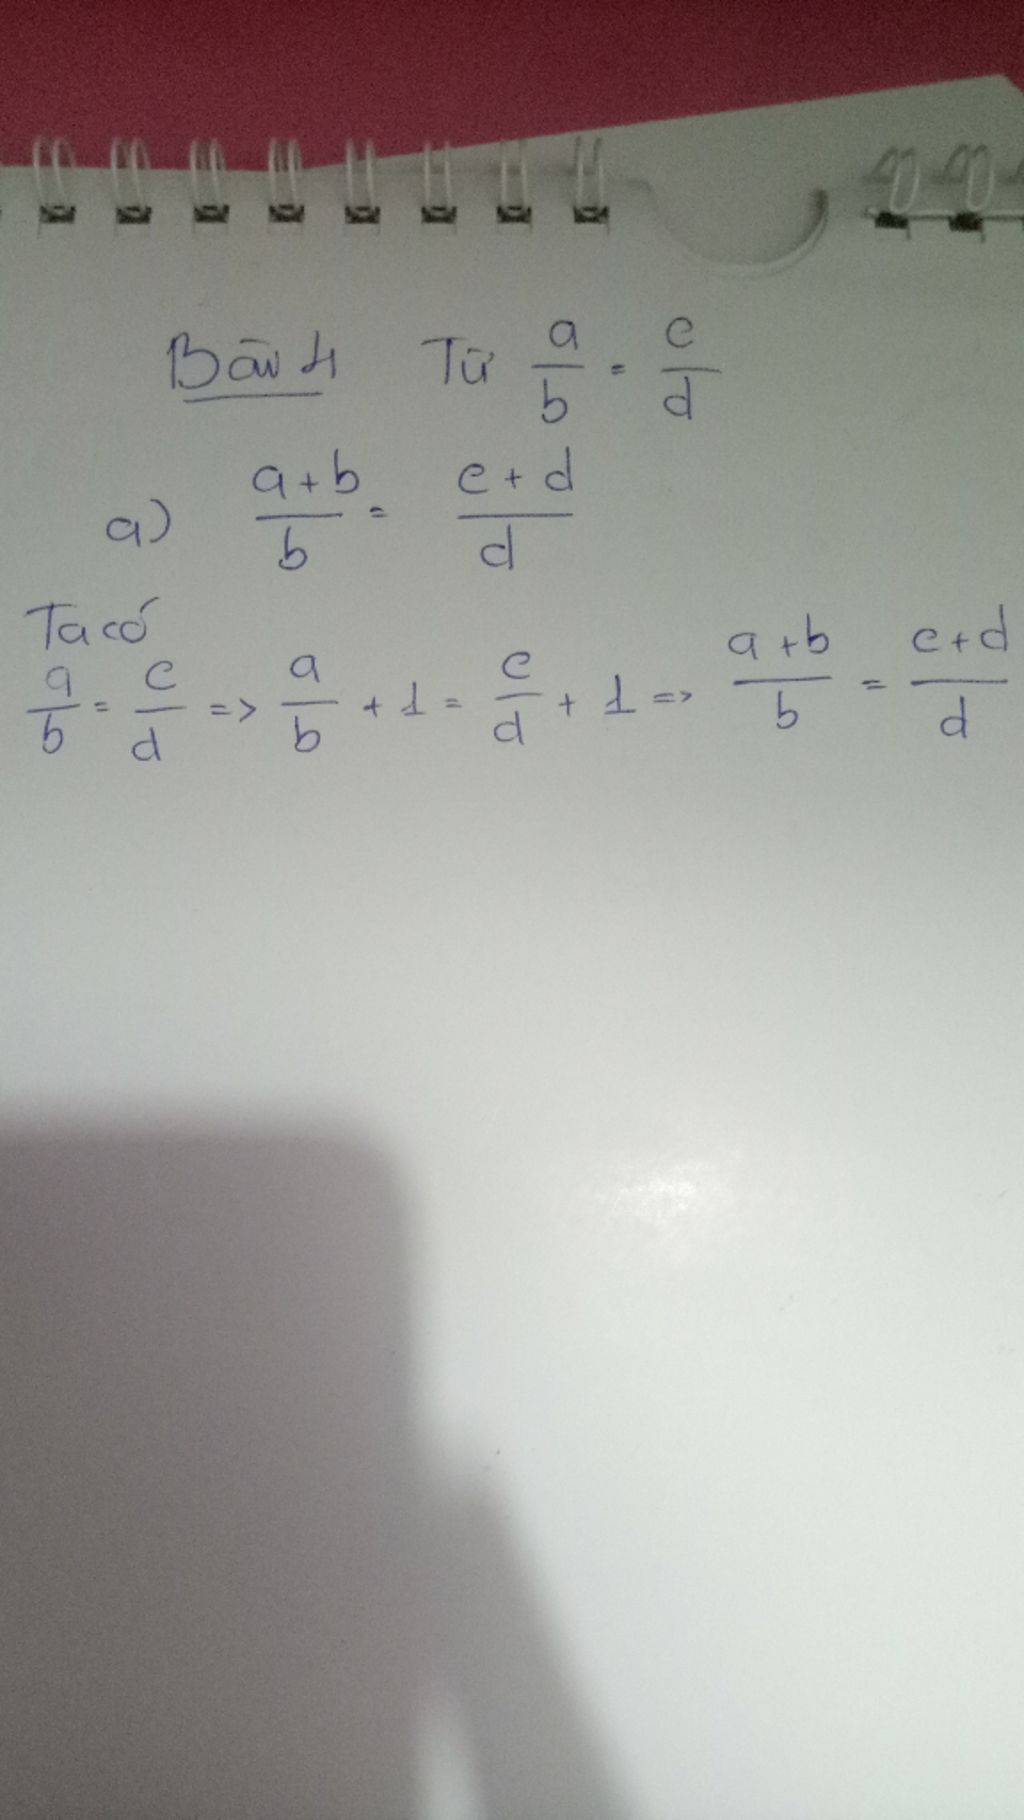 Bài 4 Từ a/b = c/d
a) a+b/b = c+d/d
Ta có
a/b = c/d => a/b + 1 = c/d + 1 => a+b/b = c+d/d